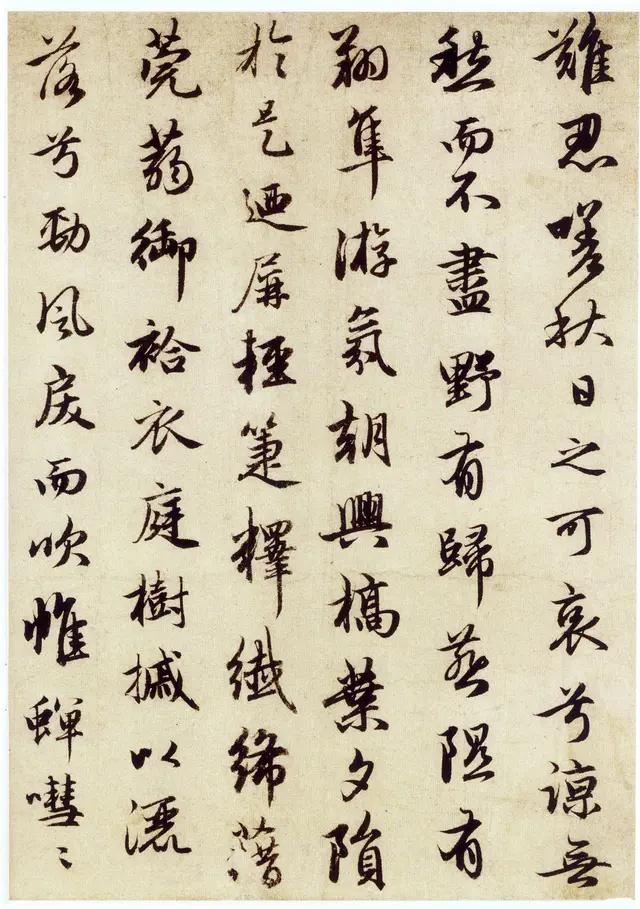 難忍嗟秋日之可哀兮諒無
愁而不盡野有歸燕隰有
翔隼游氛朝興槁葉夕隕
於是迺屏輕箑釋纖絺藉
莞蒻御袷衣庭樹槭以灑
落兮勁風戾而吹帷蟬嘒〻